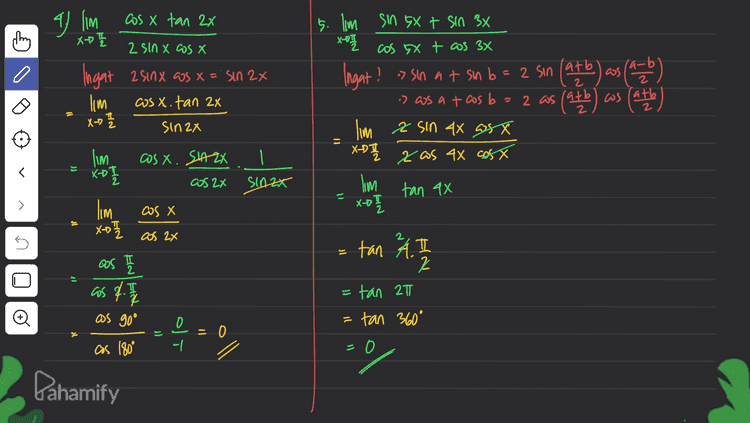 4) lim x→π/2 cos x tan 2x / 2 sin x cos x
Ingat 2 sin x cos x = sin 2x
= lim x→π/2 cos x . tan 2x / sin 2x
= lim x→π/2 cos x . sin 2x / cos 2x . 1 / sin 2x
= lim x→π/2 cos x / cos 2x
= cos π/2 / cos 2 . π/2
= cos 90° / cos 180° = 0 / -1 = 0
5. lim x→π/2 sin 5x + sin 3x / cos 5x + cos 3x
Ingat! -> sin a + sin b = 2 sin (a+b / 2) cos (a-b / 2)
-> cos a + cos b = 2 cos (a+b / 2) cos (a+b / 2)
= lim x→π/2 2 sin 4x cos x / 2 cos 4x cos x
= lim x→π/2 tan 4x
= tan 4 2 . π/2
= tan 2π
= tan 360°
= 0
Pahamify